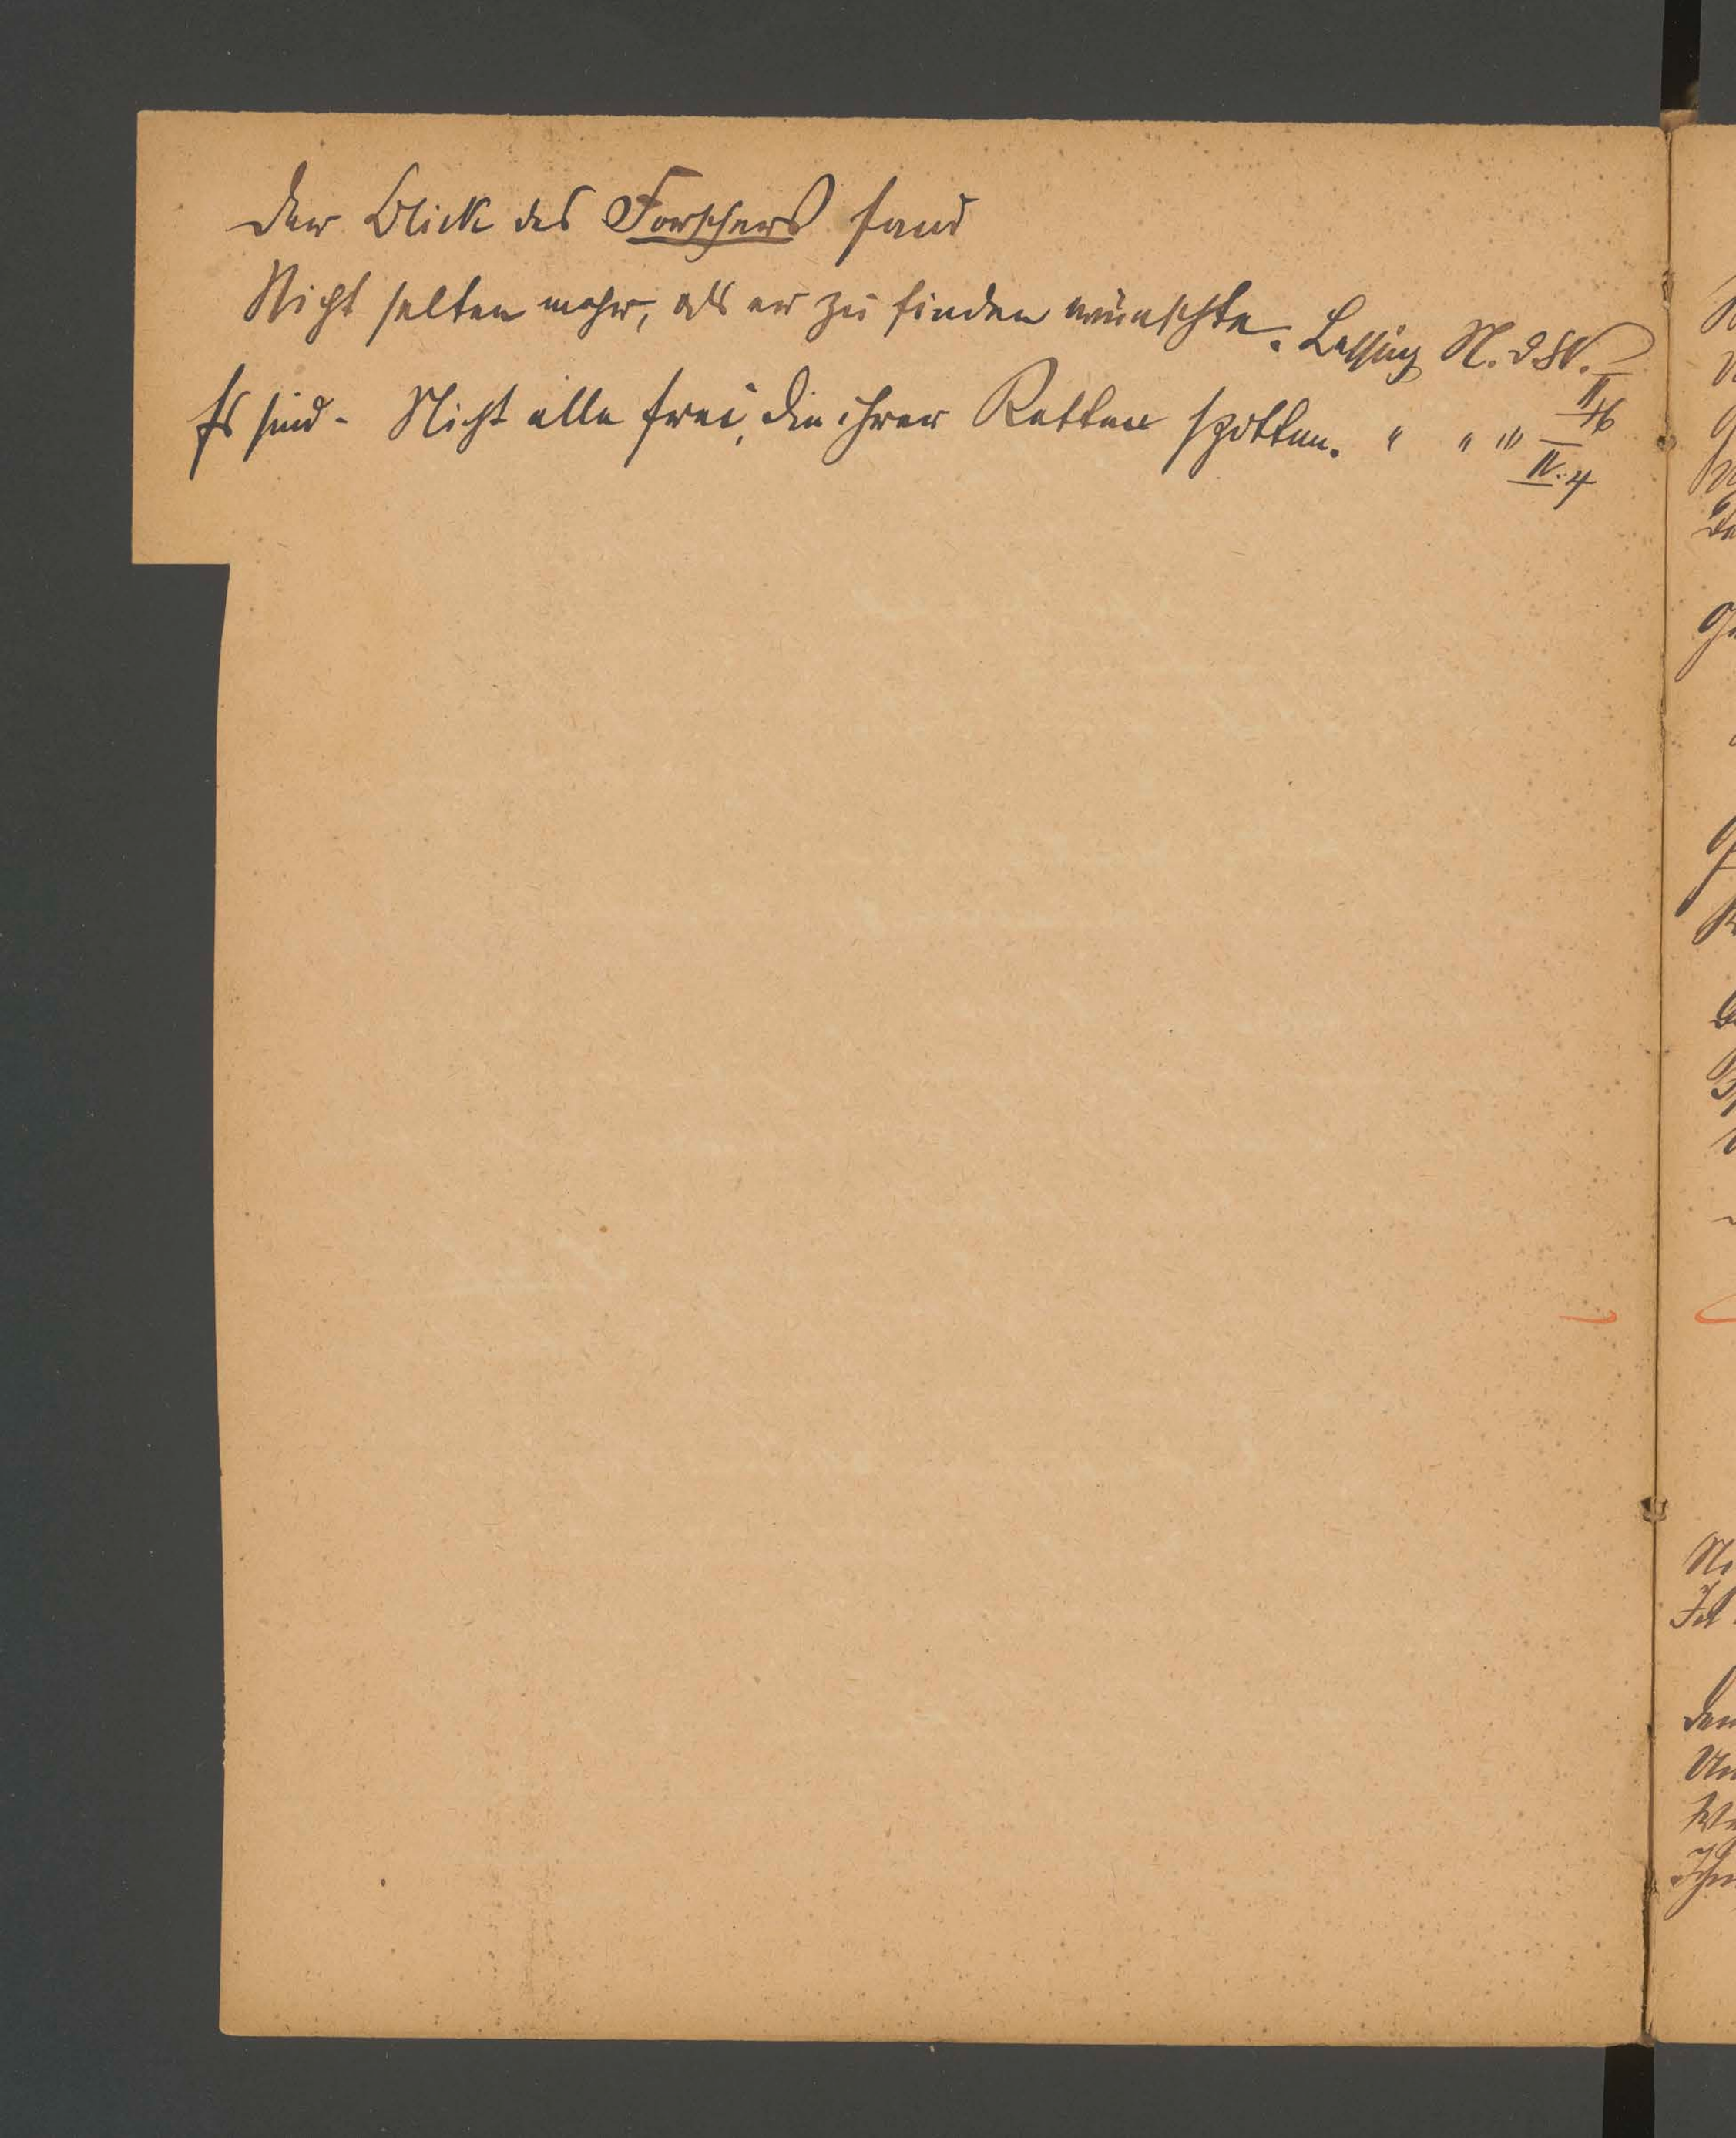 Der Blick des Forschers fand
Nicht selten mehr, als er zu finden wünschte. Lessing N. d W.
II
Es sind - Nicht alle frei, die ihrer Ketten spotten. " " "
IV. 4